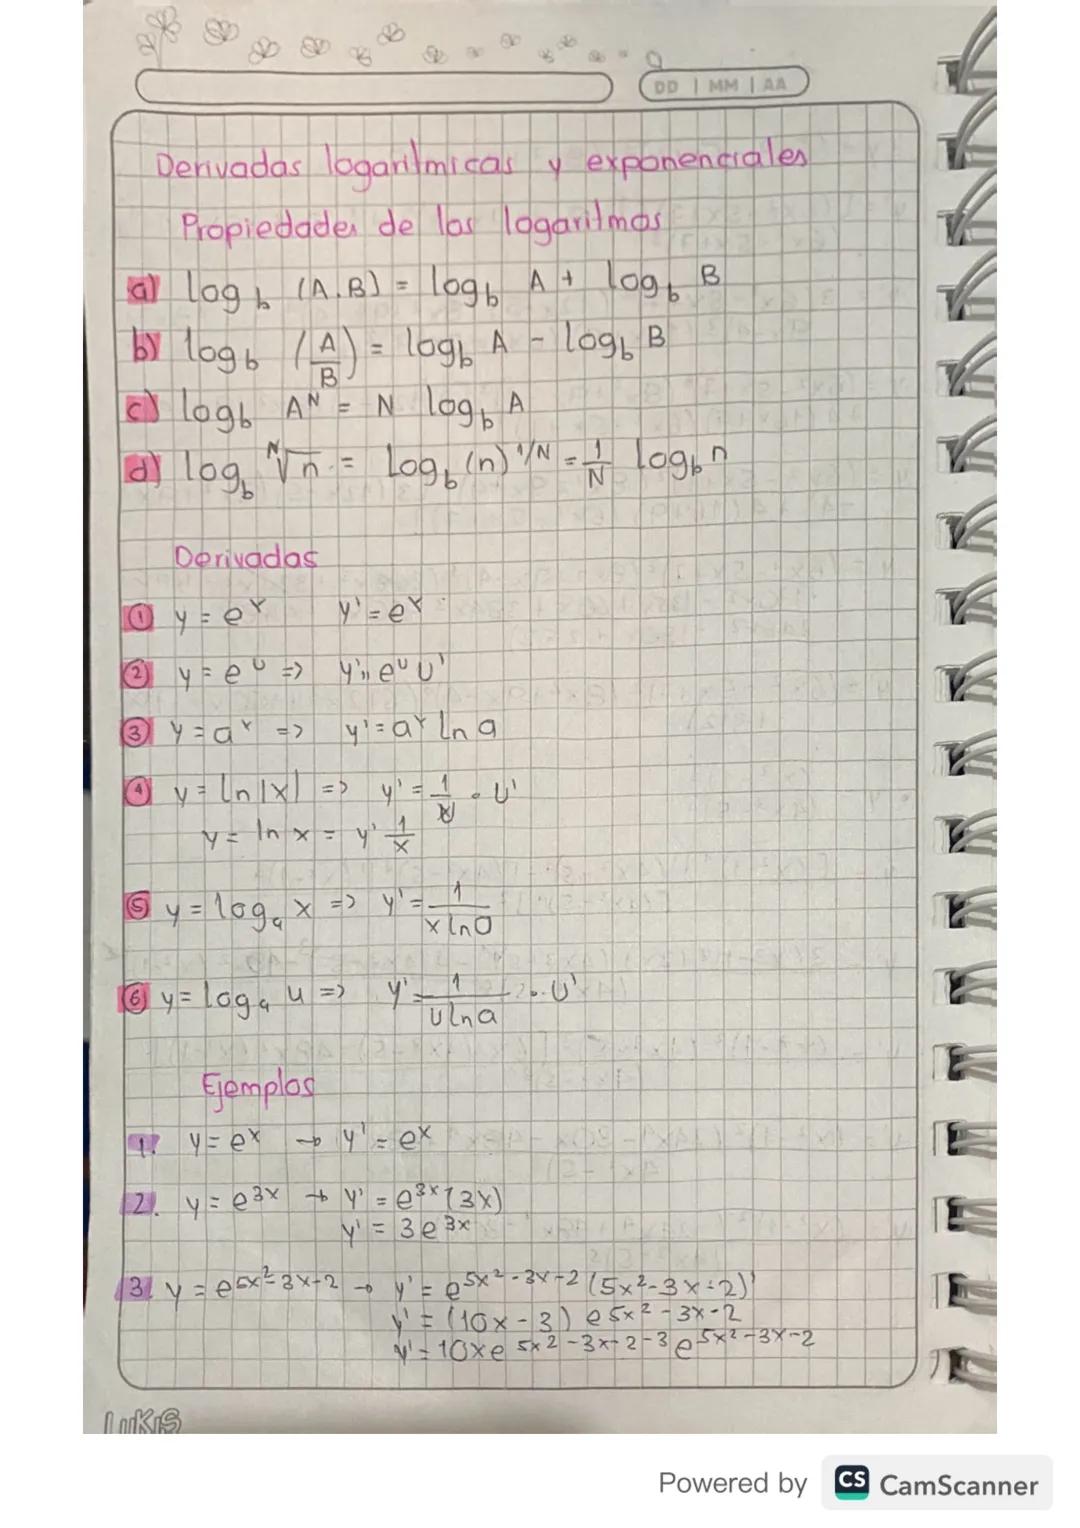 DD | MM | AA
Derivadas logaritmicas y exponenciales
Propiedades de los logaritmos
a) log_b (A.B) = log_b A + log_b B
b) log_b (A/B) = log_b A - log_b B
c) log_b A^N = N log_b A
d) log_b ᴺ√n = Log_b (n)^1/N = 1/N log_b n
Derivadas
① y = e^x y' = e^x
② y = e^u => y' = e^u U'
③ y = a^x => y' = a^x ln a
④ y = ln |x| => y' = 1/x • U'
y = ln x = y' 1/x
⑤ y = log_a x => y' = 1/x ln a
⑥ y = log_a u => y' = 1/U ln a • U'
Ejemplos
1. y = e^x → y' = e^x
2. y = e^3x → y' = e^3x (3x)
y' = 3e^3x
3. y = e^5x²-3x-2 → y' = e^5x²-3x-2 (5x²-3x-2)'
y' = (10x - 3) e^5x²-3x-2
y' = 10xe^5x²-3x-2 -3e^5x²-3x-2
LUKIS
Powered by CS CamScanner